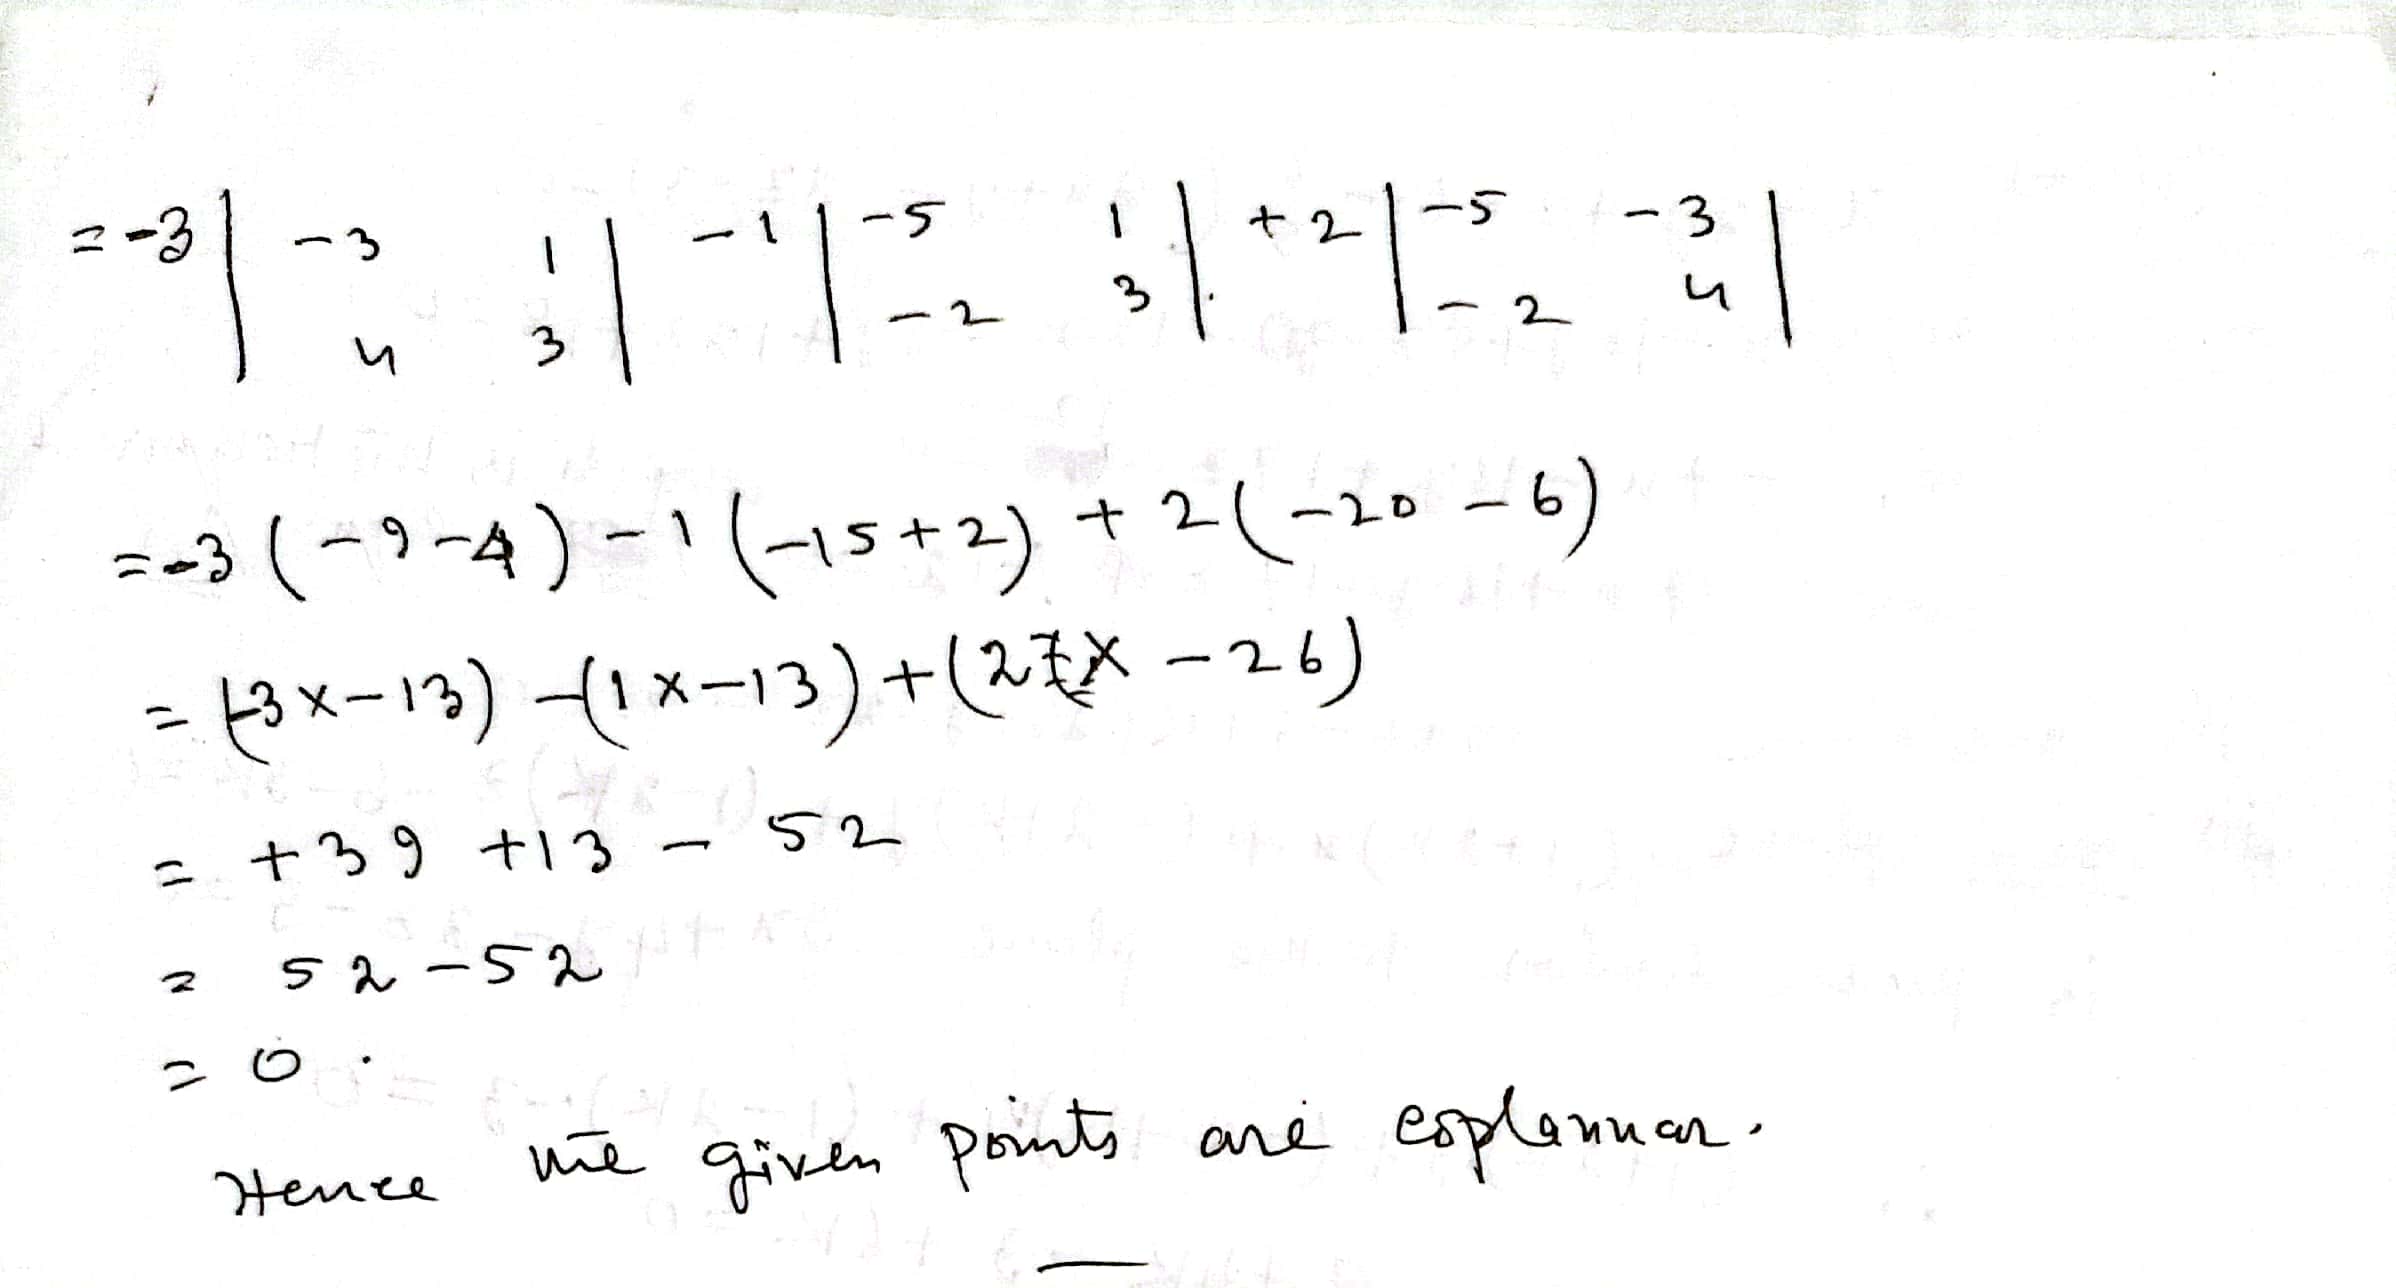 = -3 | -3 1 | -1 | -5 1 | +2 | -5 -3 |
4 3 -2 3 -2 4
= -3 (-9-4) -1 (-15+2) + 2 (-20-6)
= (-3x-13) -(1x-13)+(2x -26)
= +39 +13 - 52
= 52 -52
= 0.
Hence the given points are coplannar.